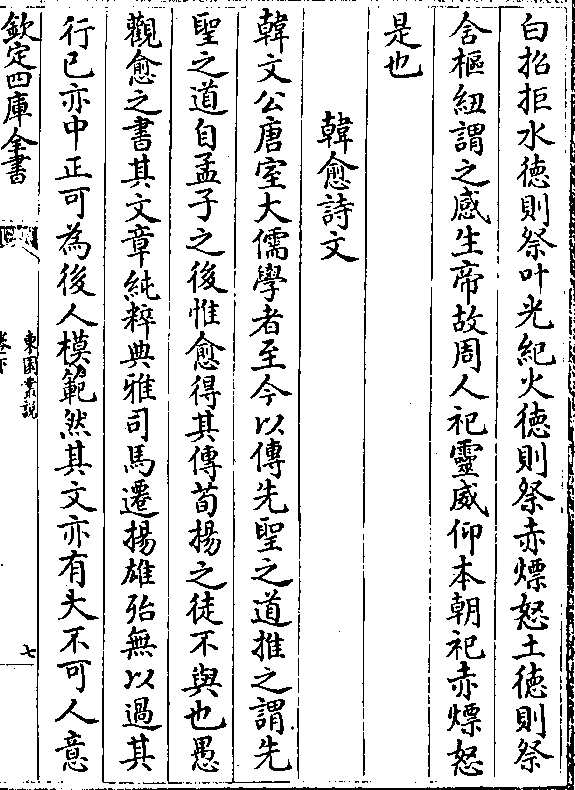 白招拒水徳則祭叶光紀火徳則祭赤熛怒土徳則祭
含樞紐謂之感生帝故周人祀靈威仰本朝祀赤熛怒
是也
韓愈詩文
韓文公唐室大儒學者至今以傳先聖之道推之謂先
聖之道自孟子之後惟愈得其傳荀揚之徒不與也愚
觀愈之書其文章純粹典雅司馬遷揚雄殆無以過其
行已亦中正可為後人模範然其文亦有大不可人意
欽定四庫全書
東園叢說
卷下
七